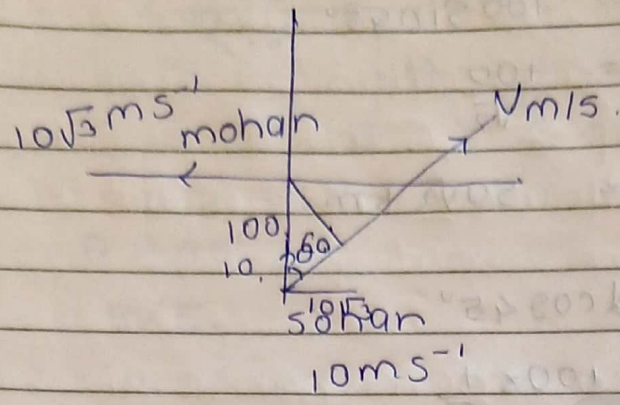 10√3 ms⁻¹
mohan
Vm/s.
100
60
10
sohan
10ms⁻¹